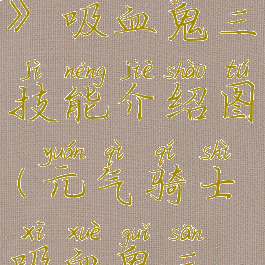 》吸血鬼三
jì néng jiè shào tú
技能介绍图
yuán qì qí shì
（元气骑士
xī xuè guǐ sān
吸血鬼三